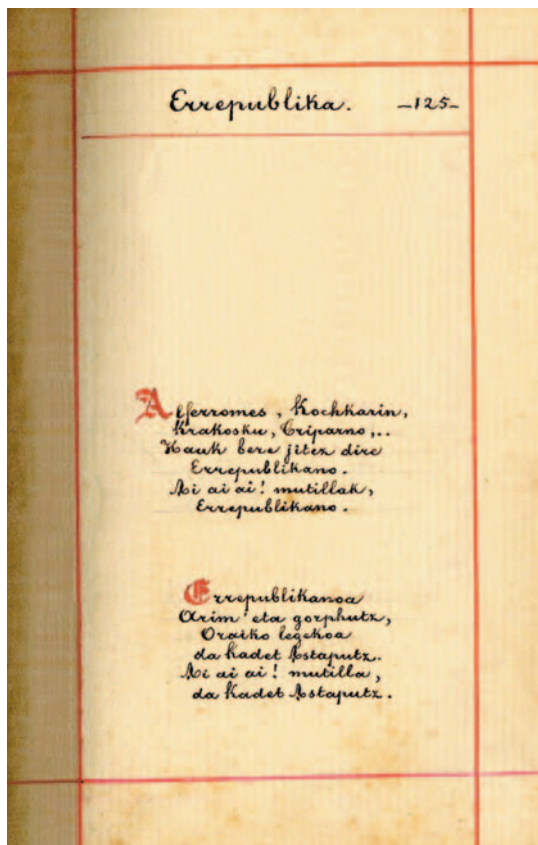 Errepublika. -125-
Alferromes, Kochkarin,
Krakosku, Criparno,..
Hauk bere jitez dire
Errepublikano.
Ai ai ai! mutillak,
Errepublikano.
Errepublikanoa
Arim' eta gorphutz,
Oraiko legekoa
da Kadet Astaputz.
Ai ai ai! mutilla,
da Kadet Astaputz.